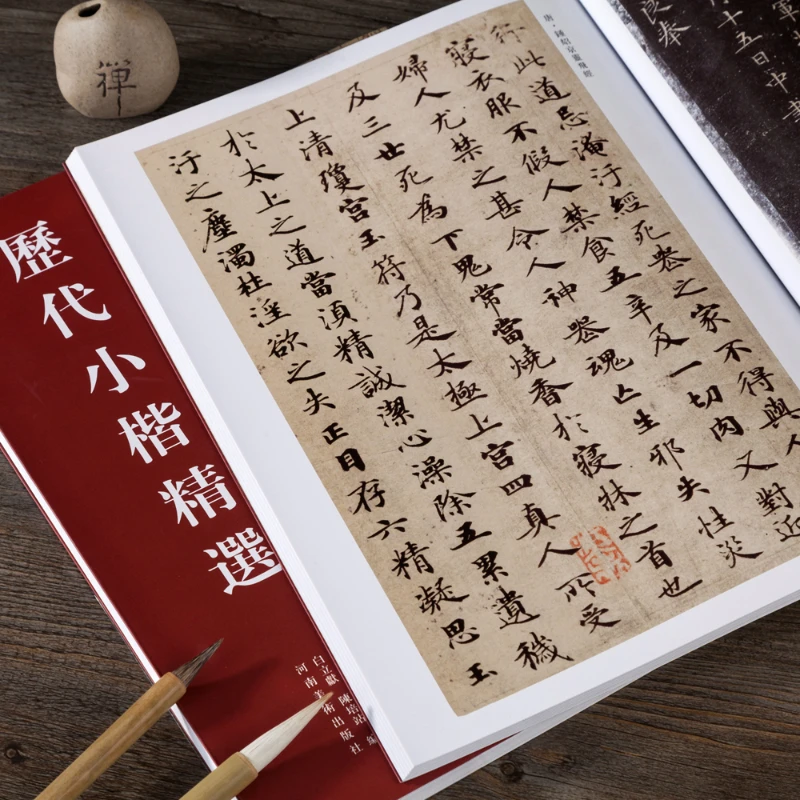 禪
歷代小楷精選
白立獻 陳培站 編
河南美術出版社
唐·鍾紹京靈飛經
行此道忌淹汙經死喪之家不得與人
寢衣服不假人禁食五辛及一切肉又對近
婦人尤禁之甚令人神喪魂亡生邪失性災
及三世死為下鬼常當燒香於寢牀之首也
上清瓊宮玉符乃是太極上宮四真人所受
於太上之道當須精誠潔心澡除五累遺穢
汙之塵濁杜淫欲之失正目存六精凝思玉
十五日中書
良奉